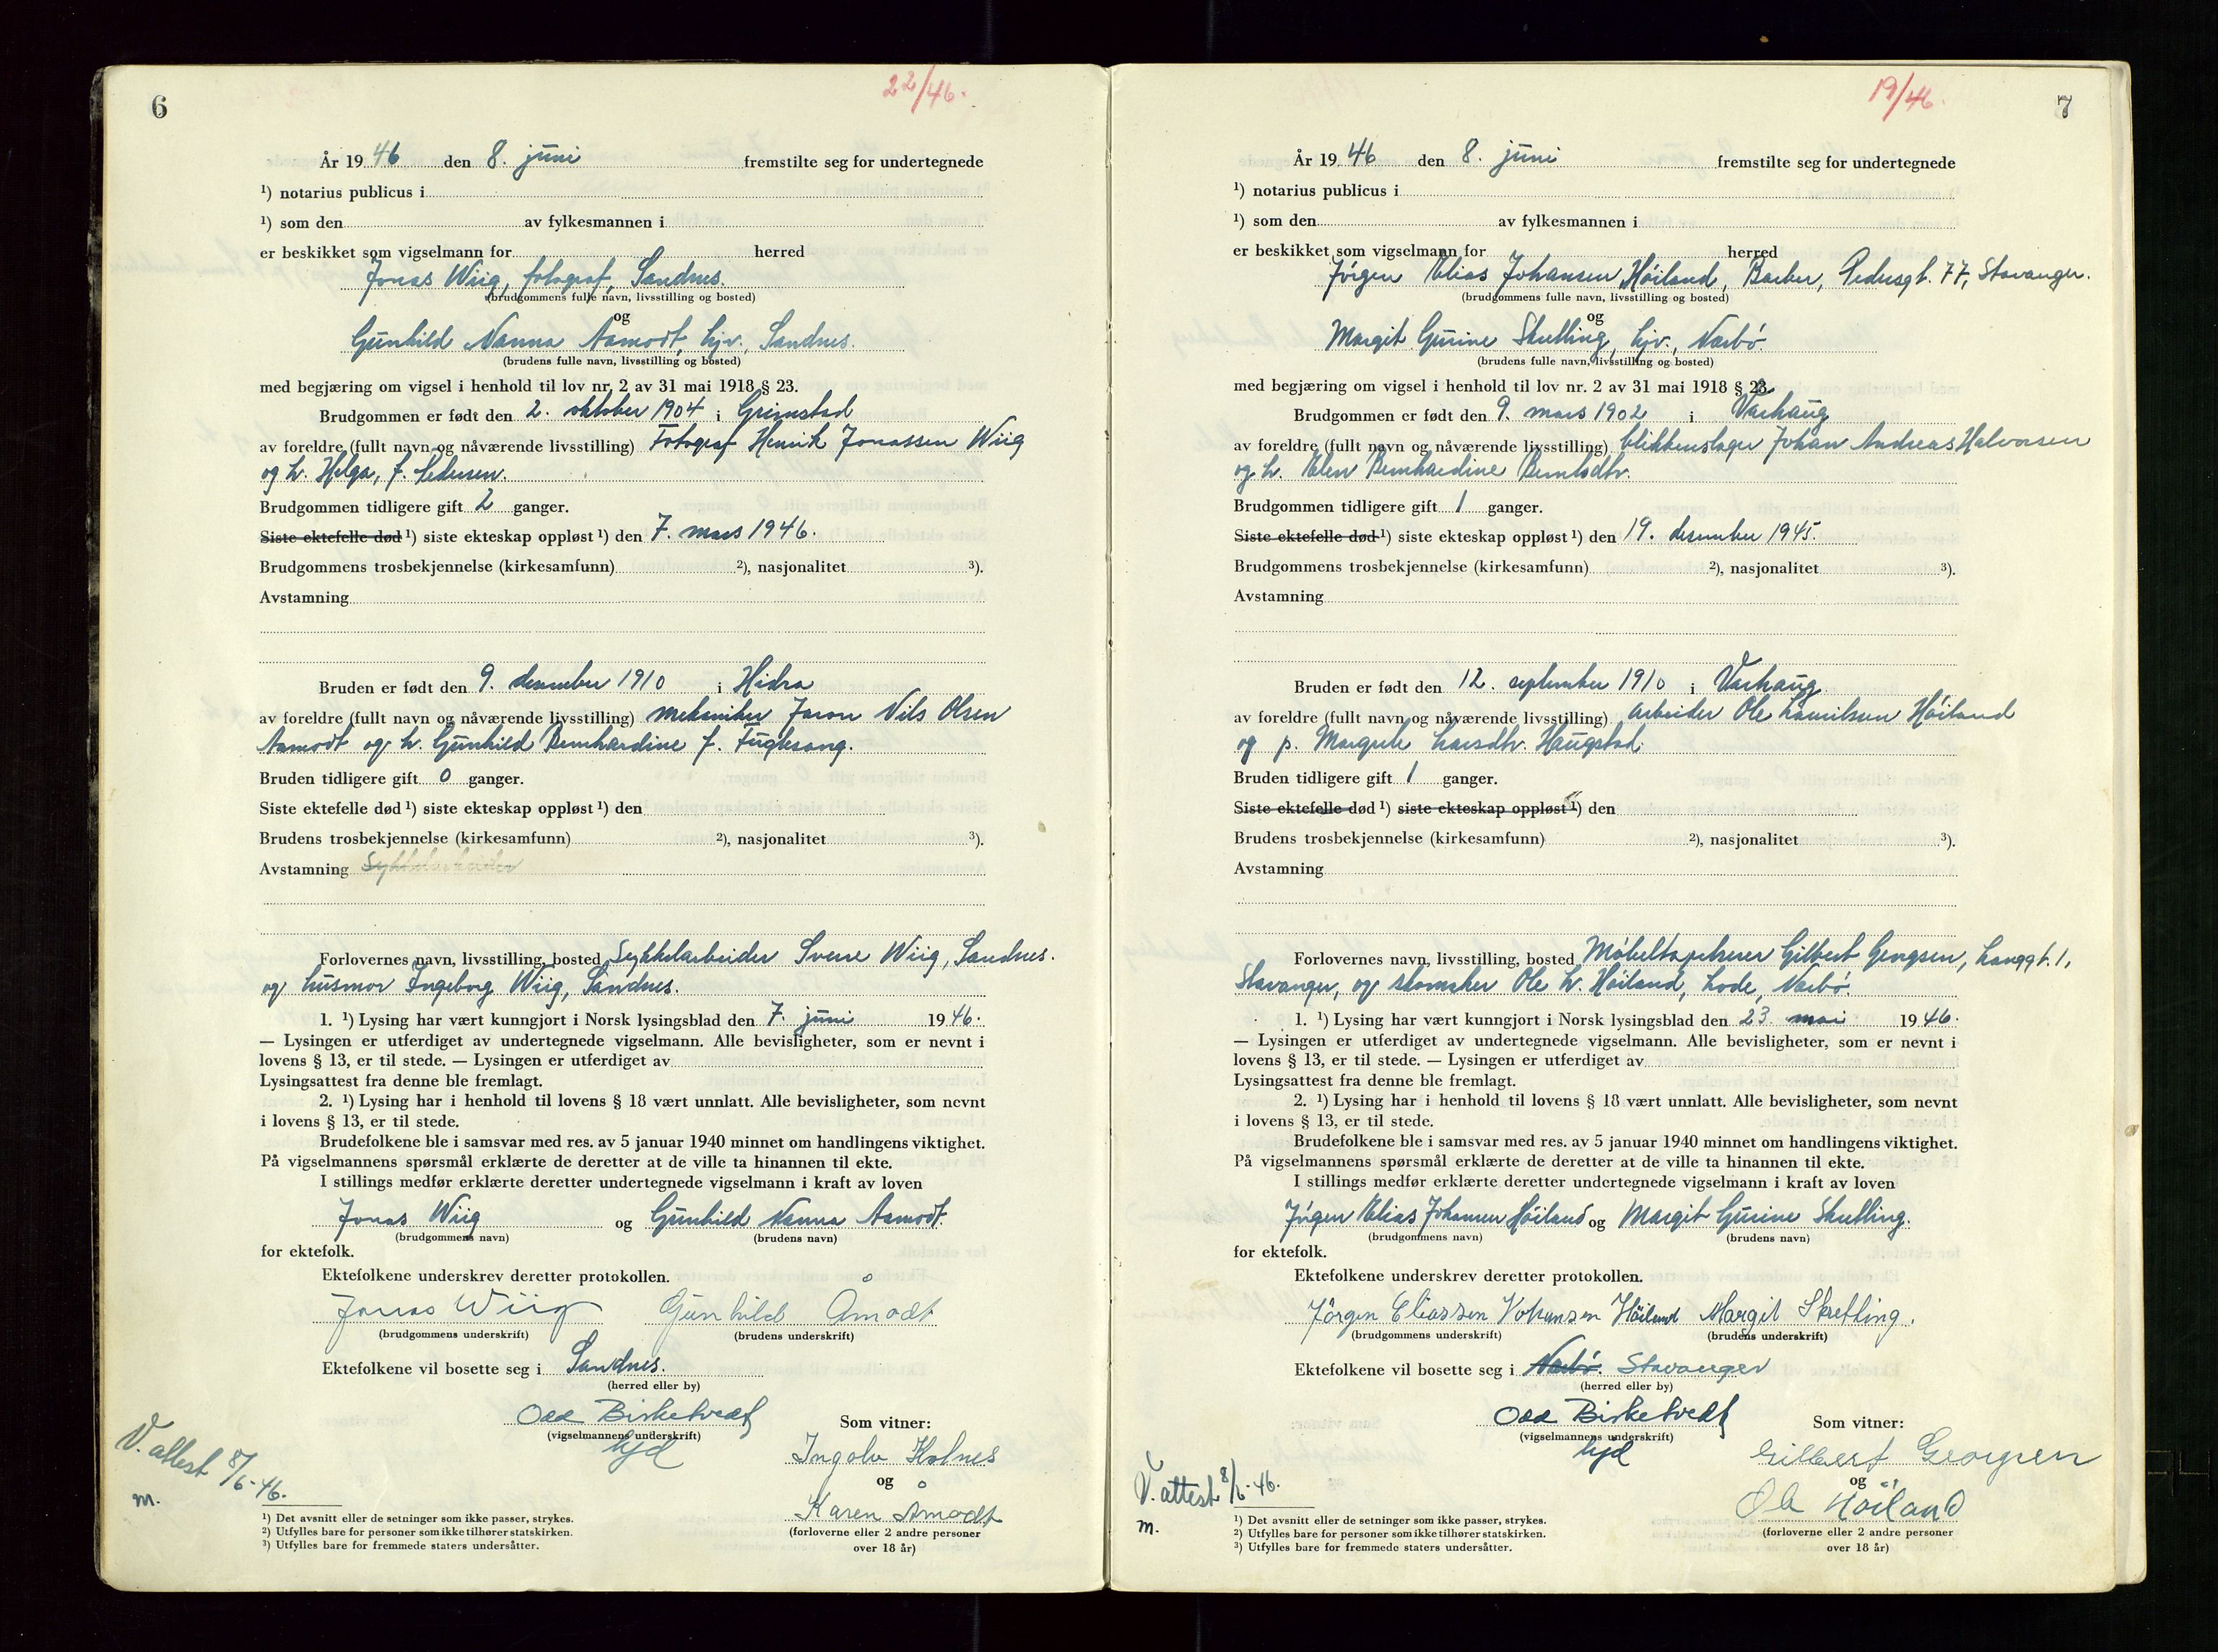 6
22/46.
År 1946 den 8. juni fremstilte seg for undertegnede
¹) notarius publicus i
¹) som den av fylkesmannen i
er beskikket som vigselmann for herred
Jonas Wiig, fotograf, Sandnes.
(brudgommens fulle navn, livsstilling og bosted)
og
Gunhild Nanna Aamodt, hjv., Sandnes.
(brudens fulle navn, livsstilling og bosted)
med begjæring om vigsel i henhold til lov nr. 2 av 31 mai 1918 § 23.
Brudgommen er født den 2. oktober 1904 i Grimstad
av foreldre (fullt navn og nåværende livsstilling) Fotograf Henrik Jonassen Wiig
og h. Helga, f. Pedersen.
Brudgommen tidligere gift 2 ganger.
Siste ektefelle død ¹) siste ekteskap oppløst ¹) den 7. mars 1946.
Brudgommens trosbekjennelse (kirkesamfunn) ²), nasjonalitet ³).
Avstamning
Bruden er født den 9. desember 1910 i Hidra
av foreldre (fullt navn og nåværende livsstilling) mekaniker Nils Olsen
Aamodt og h. Gunhild Bernhardine f. Fuglesang.
Bruden tidligere gift 0 ganger.
Siste ektefelle død ¹) siste ekteskap oppløst ¹) den
Brudens trosbekjennelse (kirkesamfunn) ²), nasjonalitet ³).
Avstamning Sykkelarbeider
Forlovernes navn, livsstilling, bosted Sykkelarbeider Sverre Wiig, Sandnes.
og husmor Ingeborg Wiig, Sandnes.
1. ¹) Lysing har vært kunngjort i Norsk lysingsblad den 7. juni 1946.
— Lysingen er utferdiget av undertegnede vigselmann. Alle bevisligheter, som er nevnt i
lovens § 13, er til stede. — Lysingen er utferdiget av
Lysingsattest fra denne ble fremlagt.
2. ¹) Lysing har i henhold til lovens § 18 vært unnlatt. Alle bevisligheter, som nevnt
i lovens § 13, er til stede.
Brudefolkene ble i samsvar med res. av 5 januar 1940 minnet om handlingens viktighet.
På vigselmannens spørsmål erklærte de deretter at de ville ta hinannen til ekte.
I stillings medfør erklærte deretter undertegnede vigselmann i kraft av loven
Jonas Wiig og Gunhild Nanna Aamodt.
(brudgommens navn) (brudens navn)
for ektefolk.
Ektefolkene underskrev deretter protokollen.
Jonas Wiig Gunhild Åmodt
(brudgommens underskrift) (brudens underskrift)
Ektefolkene vil bosette seg i Sandnes.
(herred eller by)
Odd Birketvedt
(vigselmannens underskrift)
hjd
Som vitner:
Ingolv Holnes
og
Karen Åmodt
(forloverne eller 2 andre personer
over 18 år)
V. attest 8/6-46.
m.
¹) Det avsnitt eller de setninger som ikke passer, strykes.
²) Utfylles bare for personer som ikke tilhører statskirken.
³) Utfylles bare for fremmede staters undersåtter.
19/46.
7
År 1946 den 8. juni fremstilte seg for undertegnede
¹) notarius publicus i
¹) som den av fylkesmannen i
er beskikket som vigselmann for herred
Jørgen Elias Johansen Høiland, Barber, Pedersgt. 77, Stavanger.
(brudgommens fulle navn, livsstilling og bosted)
og
Margit Gurine Skretting, hjv., Nærbø.
(brudens fulle navn, livsstilling og bosted)
med begjæring om vigsel i henhold til lov nr. 2 av 31 mai 1918 § 23.
Brudgommen er født den 9. mars 1902 i Varhaug
av foreldre (fullt navn og nåværende livsstilling) blikkenslager Johan Andreas Halvorsen
og h. Elen Bernhardine Berntsdtr.
Brudgommen tidligere gift 1 ganger.
Siste ektefelle død ¹) siste ekteskap oppløst ¹) den 19. desember 1945.
Brudgommens trosbekjennelse (kirkesamfunn) ²), nasjonalitet ³).
Avstamning
Bruden er født den 12. september 1910 i Varhaug
av foreldre (fullt navn og nåværende livsstilling) arbeider Ole Høiland
og p. Margrete Larsdtr. Haugstad.
Bruden tidligere gift 1 ganger.
Siste ektefelle død ¹) siste ekteskap oppløst ¹) den
Brudens trosbekjennelse (kirkesamfunn) ²), nasjonalitet ³).
Avstamning
Forlovernes navn, livsstilling, bosted Møbeltapetserer Gilbert Georgsen, Langgt. 1,
Stavanger, og skomaker Ole L. Høiland, Lode, Nærbø.
1. ¹) Lysing har vært kunngjort i Norsk lysingsblad den 23. mai 1946.
— Lysingen er utferdiget av undertegnede vigselmann. Alle bevisligheter, som er nevnt i
lovens § 13, er til stede. — Lysingen er utferdiget av
Lysingsattest fra denne ble fremlagt.
2. ¹) Lysing har i henhold til lovens § 18 vært unnlatt. Alle bevisligheter, som nevnt
i lovens § 13, er til stede.
Brudefolkene ble i samsvar med res. av 5 januar 1940 minnet om handlingens viktighet.
På vigselmannens spørsmål erklærte de deretter at de ville ta hinannen til ekte.
I stillings medfør erklærte deretter undertegnede vigselmann i kraft av loven
Jørgen Elias Johansen Høiland og Margit Gurine Skretting.
(brudgommens navn) (brudens navn)
for ektefolk.
Ektefolkene underskrev deretter protokollen.
Jörgen Eliassen Johansen Höiland Margit Skretting.
(brudgommens underskrift) (brudens underskrift)
Ektefolkene vil bosette seg i Nærbø. Stavanger
(herred eller by)
Odd Birketvedt
(vigselmannens underskrift)
hjd
Som vitner:
Gilbert Georgsen
og
Ole Höiland
(forloverne eller 2 andre personer
over 18 år)
V. attest 8/6-46.
m.
¹) Det avsnitt eller de setninger som ikke passer, strykes.
²) Utfylles bare for personer som ikke tilhører statskirken.
³) Utfylles bare for fremmede staters undersåtter.